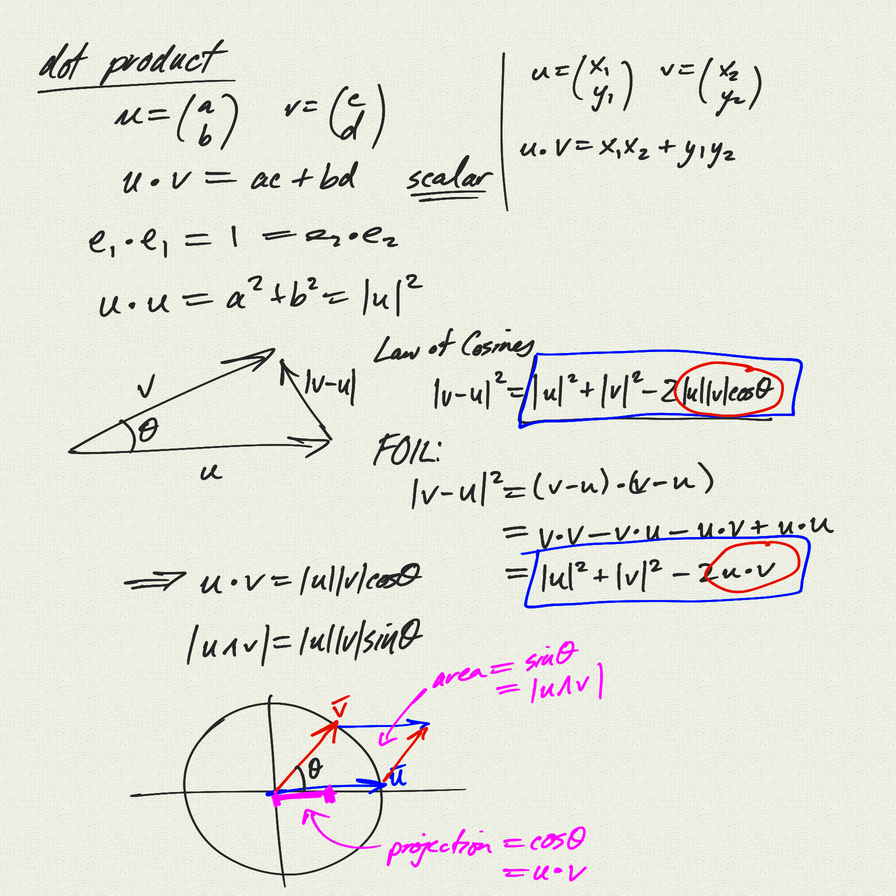 dot product
u = (a b) v = (c d)
u · v = ac + bd scalar
e₁ · e₁ = 1 = e₂ · e₂
u · u = a² + b² = |u|²
u = (x₁ y₁) v = (x₂ y₂)
u · v = x₁x₂ + y₁y₂
v
θ
u
|v-u|
Law of Cosines
|v-u|² = |u|² + |v|² - 2|u||v|cosθ
FOIL:
|v-u|² = (v-u) · (v-u)
= v·v - v·u - u·v + u·u
= |u|² + |v|² - 2u·v
⟹ u · v = |u||v|cosθ
|u∧v| = |u||v|sinθ
area = sinθ
= |u∧v|
v̄
θ
ū
projection = cosθ
= u·v